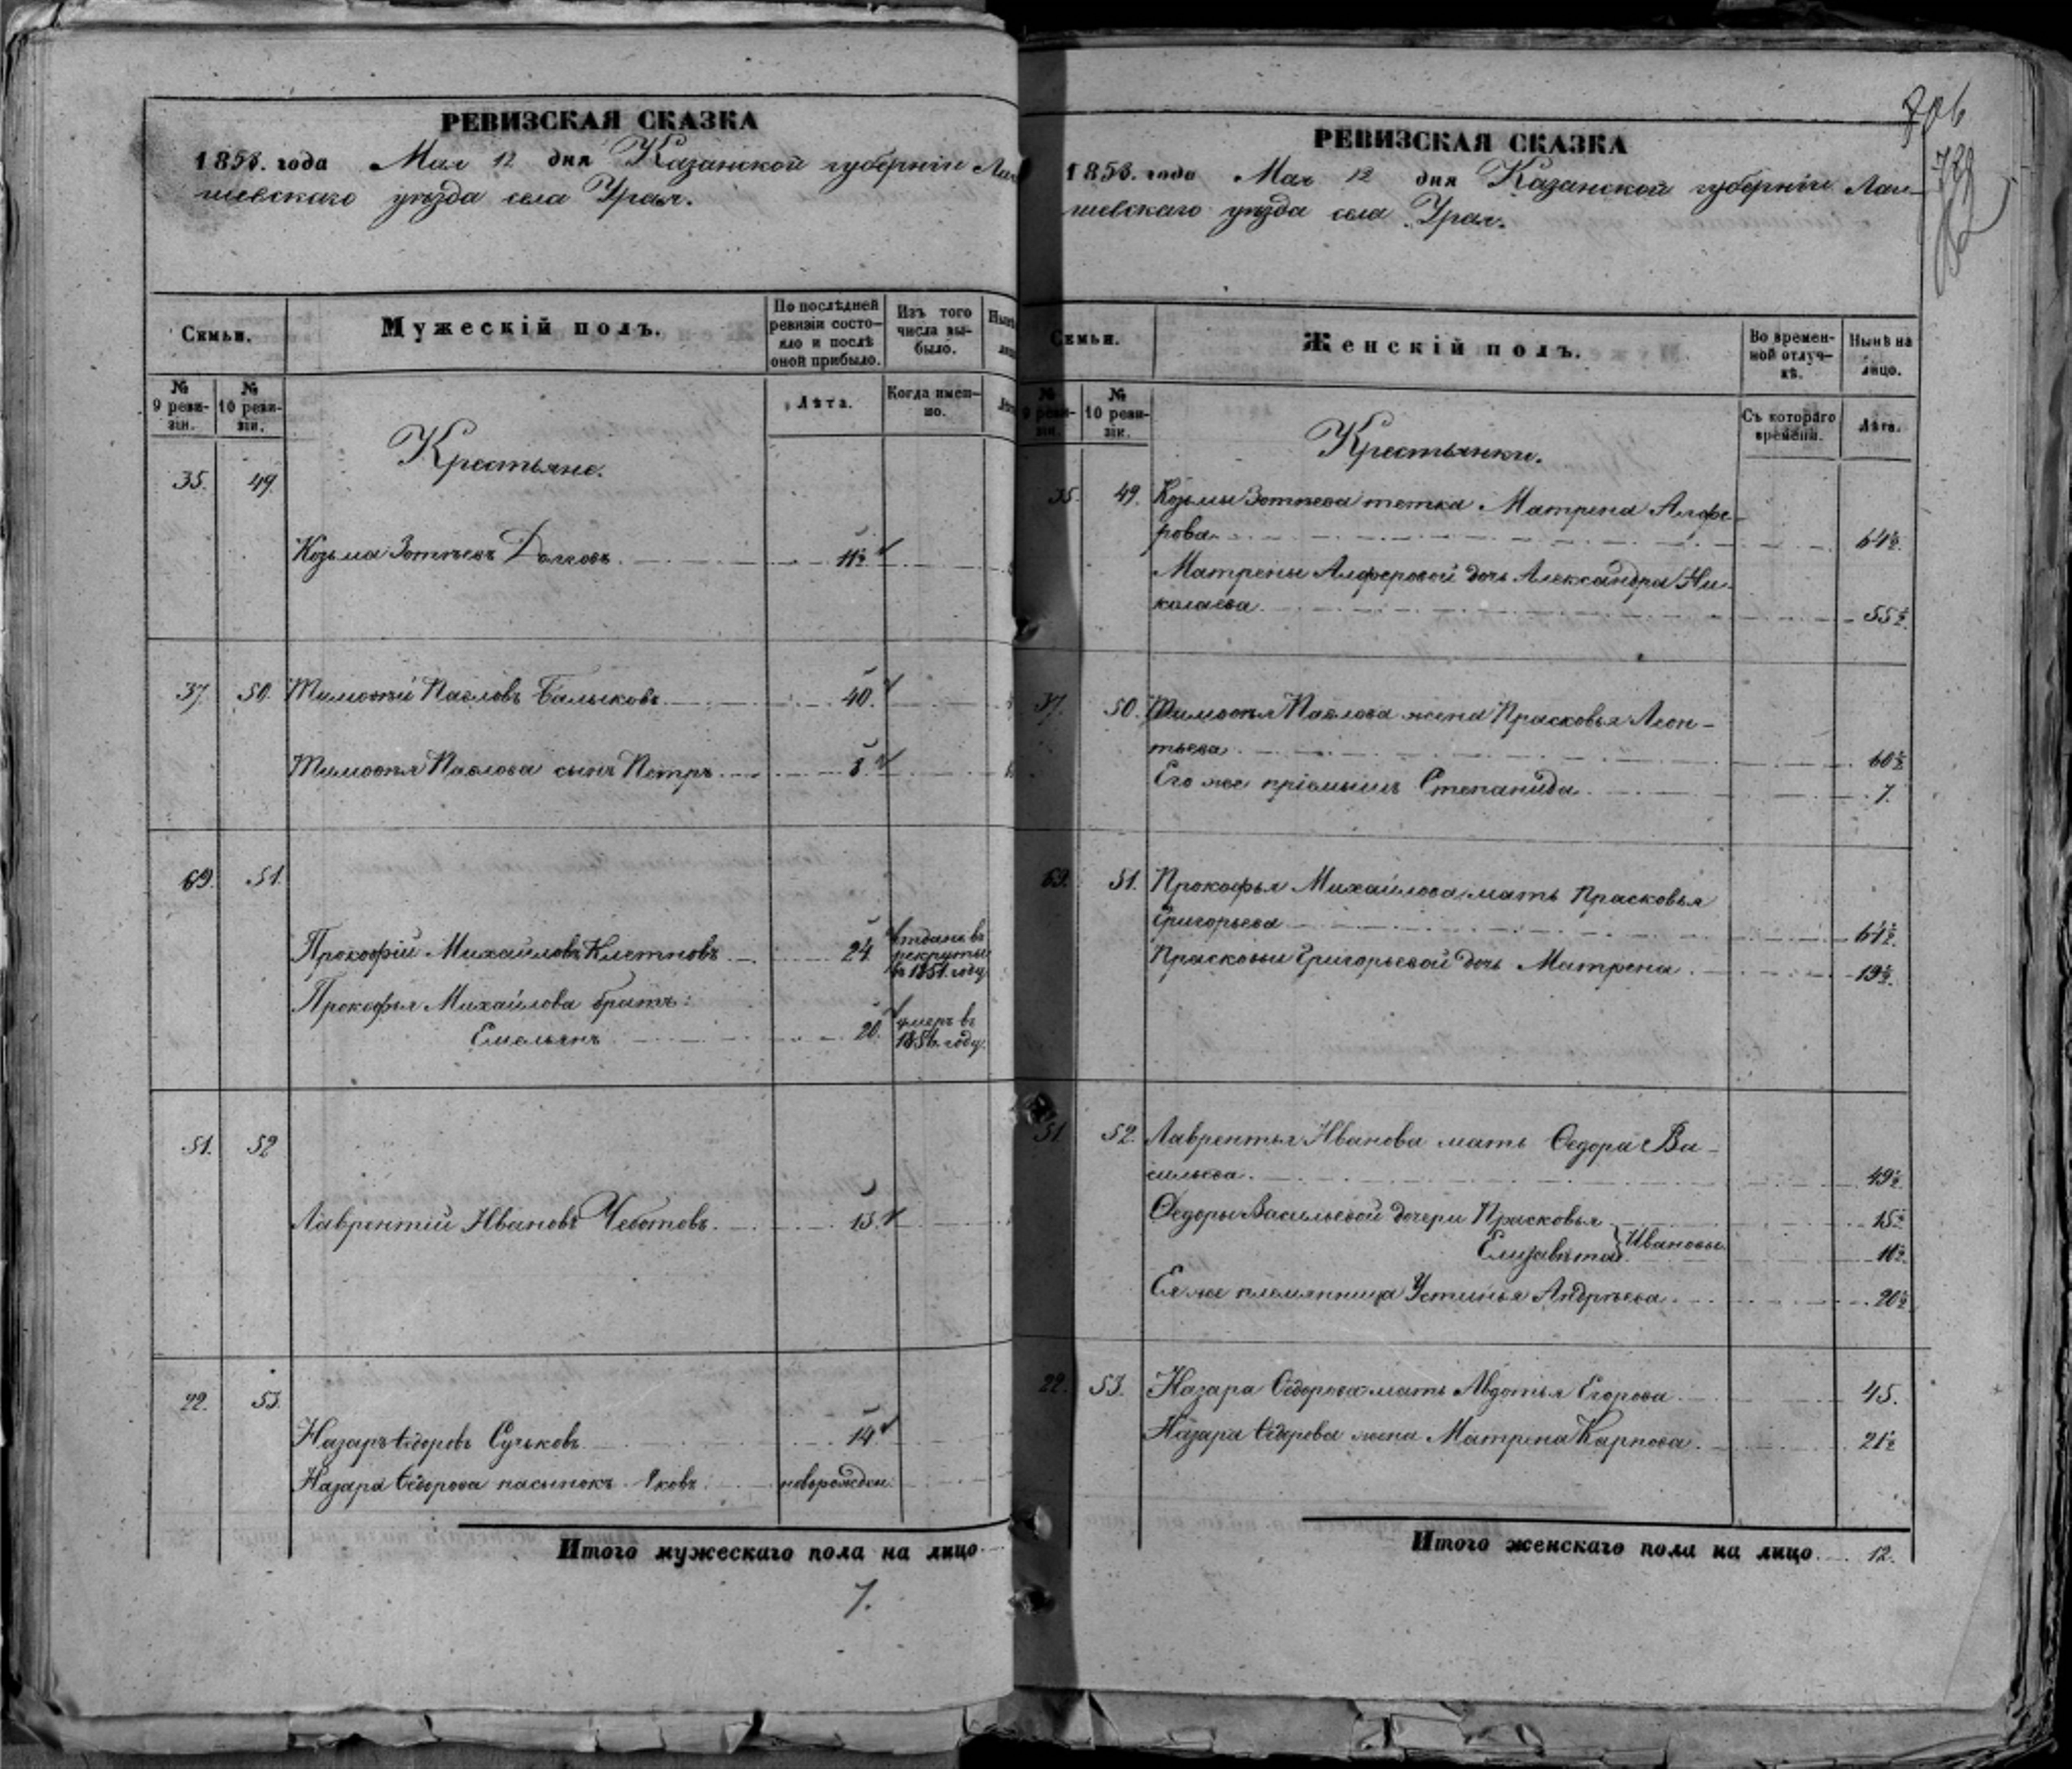 РЕВИЗСКАЯ СКАЗКА
1858. года Мая 12 дня Казанской губерніи Лаи
шевскаго уѣзда села Урая.
Семьи.
Мужескій полъ.
По послѣдней
ревизіи состо-
яло и послѣ
оной прибыло.
Изъ того
числа вы-
было.
№
9 реви-
зіи.
№
10 реви-
зіи.
Лѣта.
Когда имен-
но.
Крестьяне.
35. 49.
Козьма Зотѣевъ 11½
37. 50. Тимофѣй Павловъ Балыковъ 40.
Тимофѣя Павлова сынъ Петръ 8.
69. 51.
Прокофій Михайловъ Клетновъ 24. отданъ въ
рекруты
въ 1851. году
Прокофья Михайлова братъ:
Емельянъ 20. умеръ въ
1856. году.
51. 52
Лаврентій Ивановъ Чеботовъ. 13.
22. 53.
Назаръ Ѳедоровъ Сучьковъ 14
Назара Ѳедорова пасынокъ Яковъ новорожден.
Итого мужескаго пола на лицо
7.
806
РЕВИЗСКАЯ СКАЗКА
1858. года Мая 12 дня Казанской губерніи Лаи-
шевскаго уѣзда села Урая.
Семьи.
Женскій полъ.
Во времен-
ной отлуч-
кѣ.
Нынѣ на
лицо.
№
9 реви-
зіи.
№
10 реви-
зіи.
Съ котораго
времени.
Лѣта.
Крестьянки.
35. 49. Козьмы Зотѣева тетка Матрена Алфе-
рова 64½.
Матрены Алферовой дочь Александра Ни-
колаева 55½.
37. 50. Тимофѣя Павлова жена Прасковья Леон-
тьева 60½
Его же пріемышъ Степанида 7.
69. 51. Прокофья Михайлова мать Прасковья
Григорьева 61½.
Прасковьи Григорьевой дочь Матрена 19½.
51 52. Лаврентья Иванова мать Ѳедора Ва-
сильева. 49½
Ѳедоры Васильевой дочери Прасковья 15½
Елизавета } Ивановы 10½
Ея же племянница Устинья Андрѣева 20½
22. 53. Назара Ѳедорова мать Авдотья Егорова 45.
Назара Ѳедорова жена Матрена Карпова 21½
Итого женскаго пола на лицо 12.